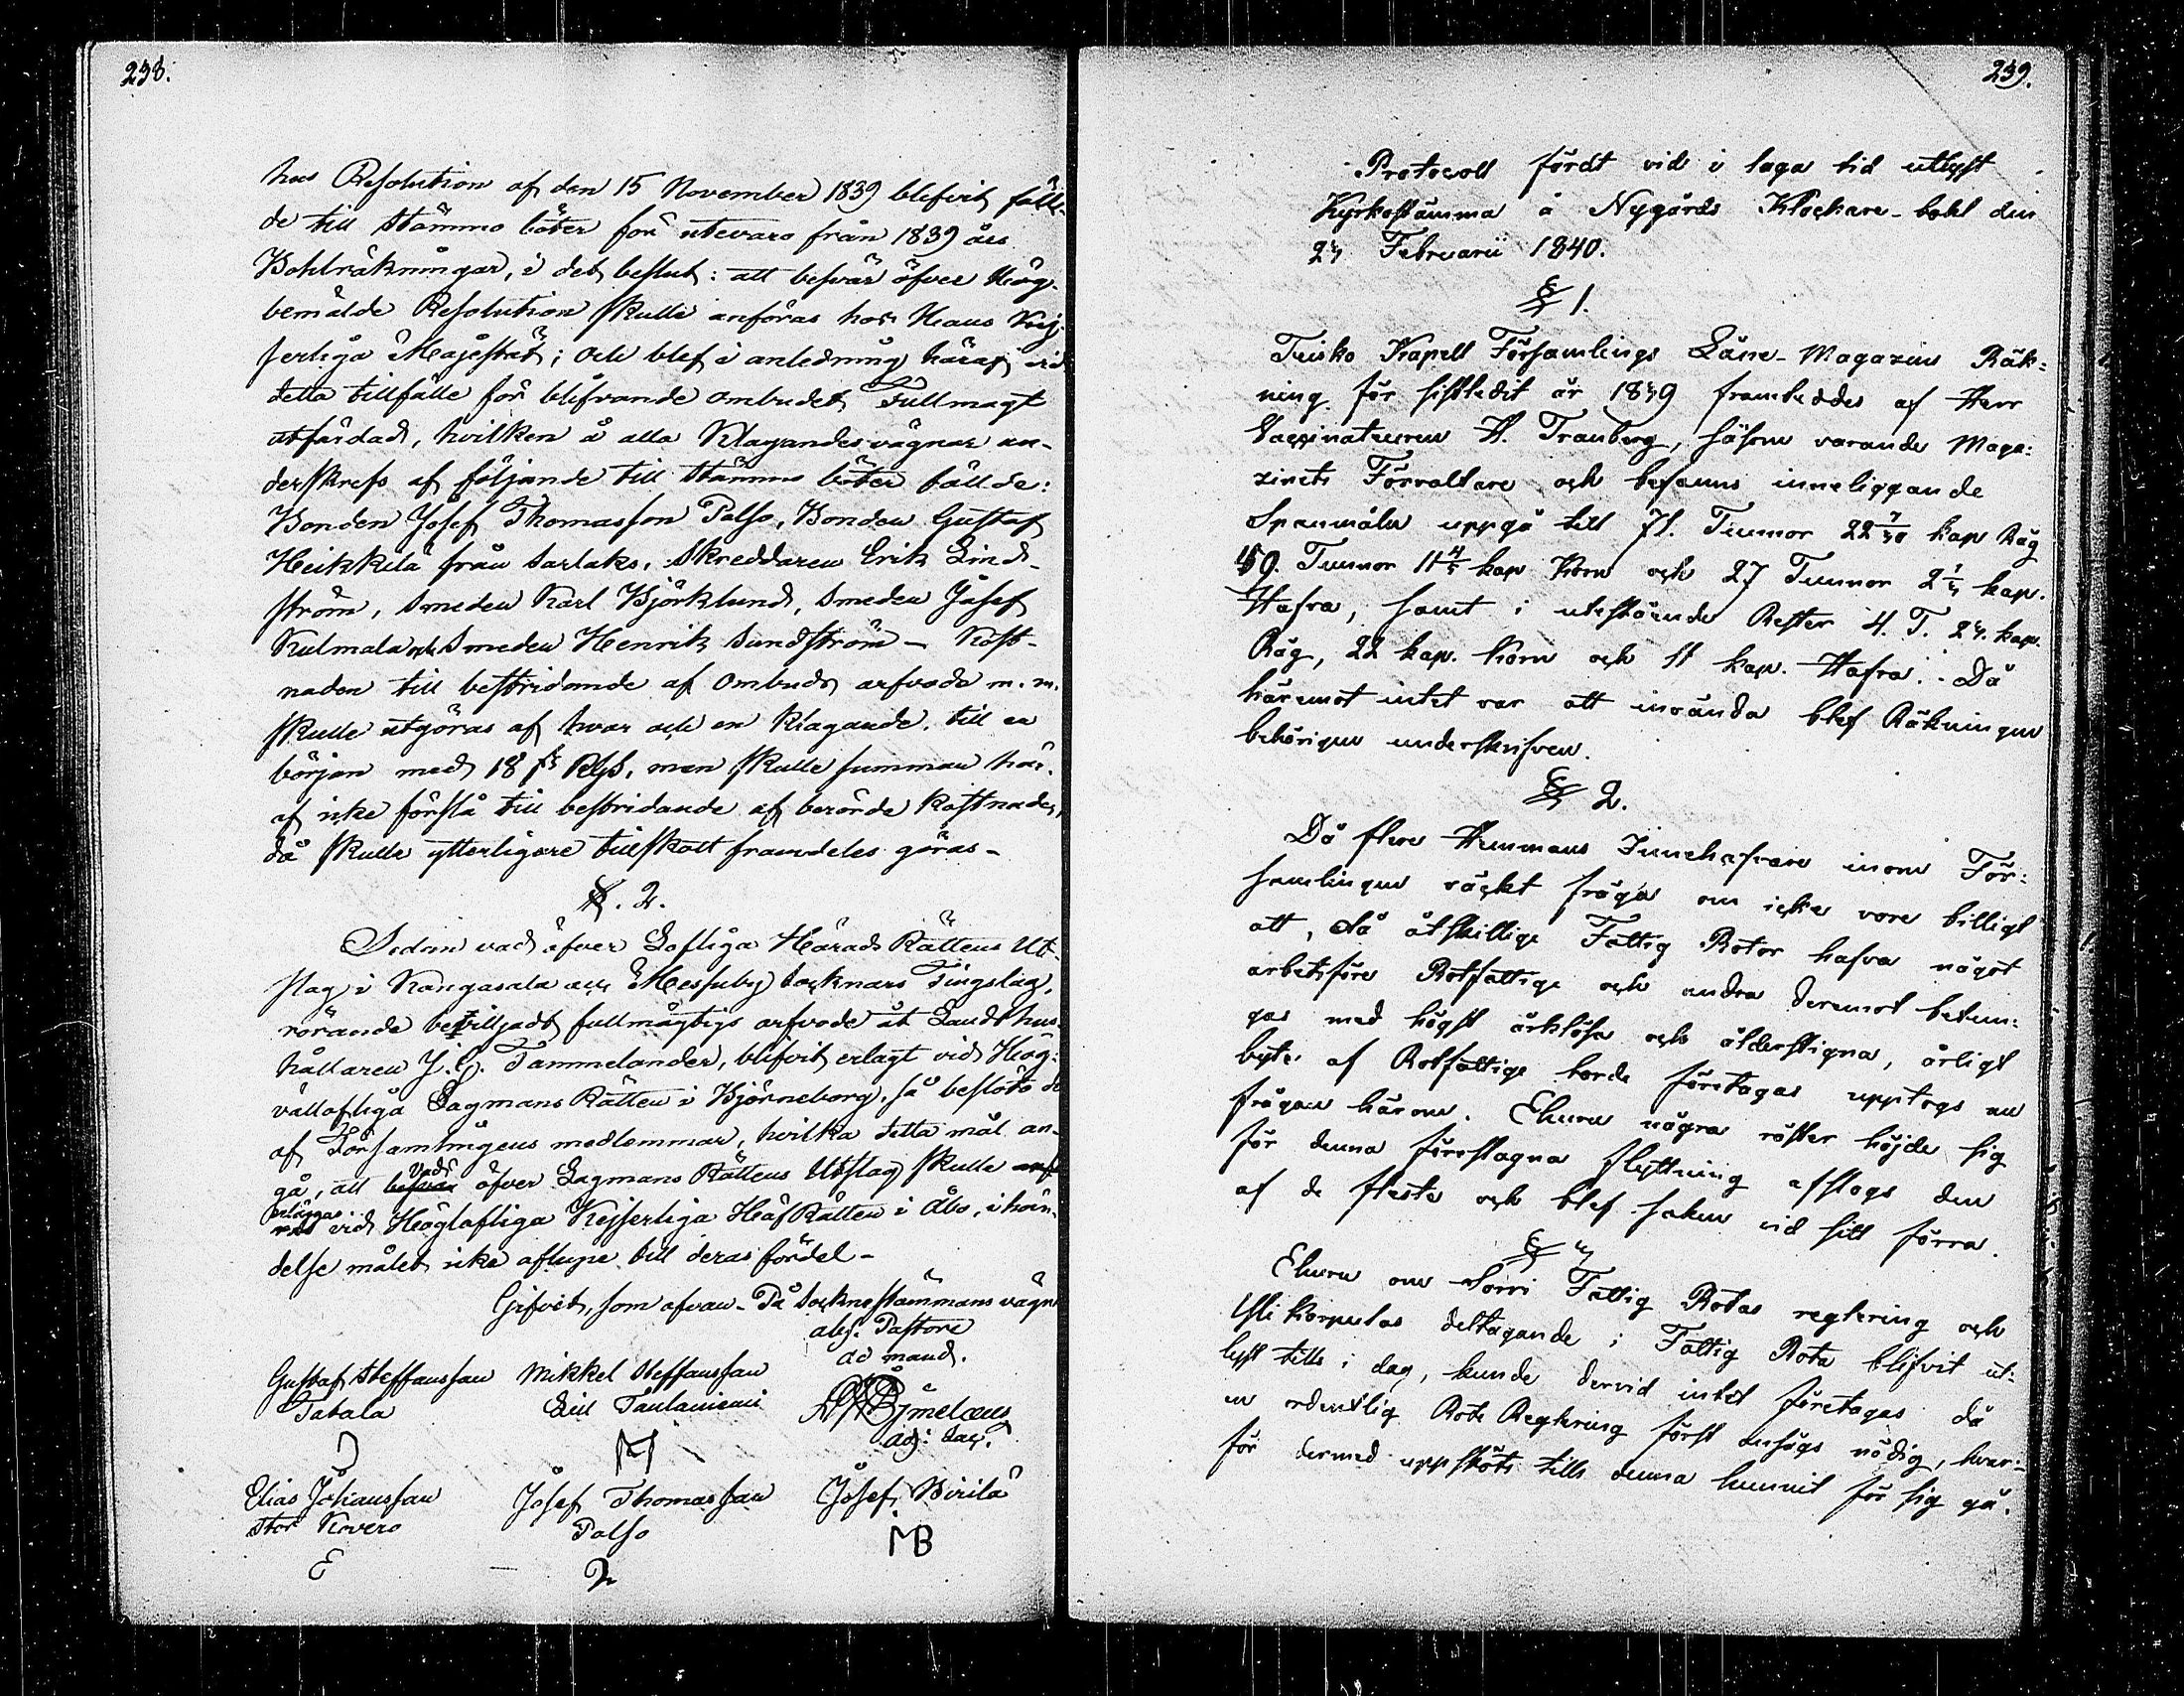 238.
hus Resolution af den 15 November 1839 blefvit fäll-
de till Stämmo böter för utevaro från 1839 års
Bohlräkningar, i det beslut: att besvär öfver Hög-
bemälde Resolution skulle anföras hos Hans Kej-
serliga Majestät; och blef i anledning häraf vid
detta tillfälle för blifvande ombudet Fullmagt
utfärdad, hvilken å alla Klagandes vägnar un-
derskrefs af följande till Stämmo böter fällde:
Bonden Josef Thomasson Palso, Bonden Gustaf
Heikkilä från Sarlaks, Skreddaren Erik Lind-
ström, Smeden Karl Björklund, Smeden Josef
Kulmala och Smeden Henrik Sundström – Kost-
naden till bestridande af Ombuds arfvode m. m.
skulle utgöras af hvar och en Klagande till en
början med 18 Rbls, men skulle summan här-
af icke förslå till bestridande af berörde kostnader,
då skulle ytterligare tillskott framdeles göras –
§. 2.
Sedan vad öfver Lofliga Härads Rättens Ut-
slag i Kangasala och Messuby Socknars Tingslag,
rörande beviljadt fullmägtigs arfvode åt Landthus-
hållaren J. G. Tammelander, blifvit erlagt vid Hög-
vällofliga Lagmans Rätten i Björneborg, så beslöto de
af Församlingens medlemmar, hvilka detta mål an-
vad
gå, att besvär öfver Lagmans Rättens Utslag skulle
erläggas
vid Höglofliga Kejserliga Håf Rätten i Åbo, i hän-
delse målet icke aflupe till deras fördel –
Gifvet, som ofvan – På Sockne stämmans vägnar
abs. Pastore
ad mand.
Gustaf Steffansson Mikkel Steffansson
Tabala
adj: Sac.
Elias Johansson Josef Thomasson Josef Wirilä
Stor Kovero Palso
E 2 MB
239.
Protocoll fördt vid i laga tid utlyst
Kyrkostämma å Nygårds Klockare-bohl den
23 Februarii 1840.
§ 1.
Teisko Kapell Församlings Låne-Magazins Räk-
ning för sistledit år 1839 framteddes af Herr
Vaccinateuren H. Tranberg, såsom varande Maga-
zinets Förvaltare och befanns inneliggande
Spanmåln uppgå till 71. Tunnor 22 7/30 kap Råg
59. Tunnor 11 4/5 kap Korn och 27 Tunnor 2 1/5 kap.
Hafra, samt i utestående Rester 4. T. 23. kap.
Råg, 22 kap. Korn och 11 kap. Hafra. Då
häremot intet var att invända blef Räkningen
behörigen underskrifven.
§ 2.
Då flere Hemmans Innehafvare inom För-
samlingen väckt fråga om icke vore billigt
att, då åtskillige Fattig Rotor hafva något
arbetsföre Rotfattige och andra deremot betun-
gas med högst orklösa och ålderstigna, årligt
byte af Rotfattige borde företagas upptogs nu
frågan härom. Ehuru några röster höjde sig
för denna föreslagna flyttning afslogs den
af de fleste och blef saken vid sitt förra.
§ 3
Ehuru om Sorri Fattig Rotas reglering och
Uli Korpulas deltagande i Fattig Rota blifvit ut-
lyst tills i dag, kunde dervid intet företagas då
en ordentlig Rote Reglering först ansågs nödig, hvar-
för dermed uppskjöts tills denna hunnit för sig gå.